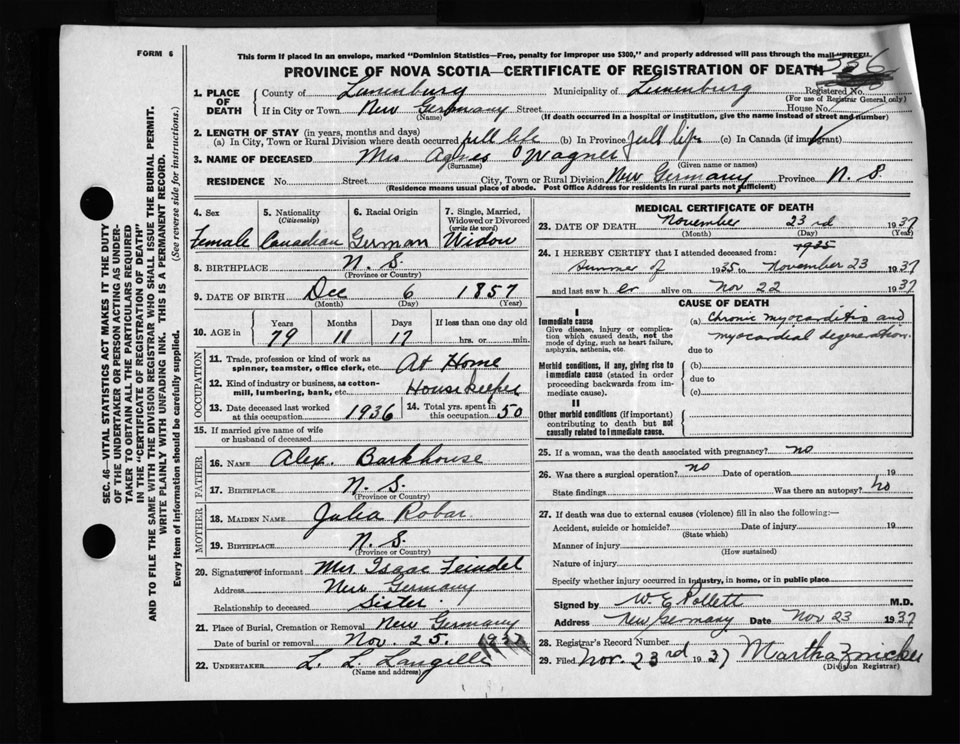 FORM 6
This form if placed in an envelope, marked "Dominion Statistics—Free, penalty for improper use $300," and properly addressed will pass through the mail "FREE"
PROVINCE OF NOVA SCOTIA—CERTIFICATE OF REGISTRATION OF DEATH
1. PLACE OF DEATH
County of Lunenburg Municipality of Lunenburg Registered No.
(For use of Registrar General only)
If in City or Town New Germany Street House No.
(Name) (If death occurred in a hospital or institution, give the name instead of street and number)
2. LENGTH OF STAY (in years, months and days)
(a) In City, Town or Rural Division where death occurred full life (b) In Province full life (c) In Canada (if immigrant)
3. NAME OF DECEASED Mrs Agnes O Wagner
(Surname) (Given name or names)
RESIDENCE No. Street City, Town or Rural Division New Germany Province N. S
(Residence means usual place of abode. Post Office Address for residents in rural parts not sufficient)
4. Sex Female
5. Nationality (Citizenship) Canadian
6. Racial Origin German
7. Single, Married, Widowed or Divorced (write the word) Widow
8. BIRTHPLACE N. S.
(Province or Country)
9. DATE OF BIRTH Dec 6 1857
(Month) (Day) (Year)
10. AGE in Years Months Days If less than one day old
79 11 17 hrs. or min.
OCCUPATION
11. Trade, profession or kind of work as spinner, teamster, office clerk, etc. At Home
12. Kind of industry or business, as cotton-mill, lumbering, bank, etc. Housekeeper
13. Date deceased last worked at this occupation 1936
14. Total yrs. spent in this occupation 50
15. If married give name of wife or husband of deceased
FATHER
16. NAME Alex. Barkhouse
17. BIRTHPLACE N. S.
(Province or Country)
MOTHER
18. MAIDEN NAME Julia Robar
19. BIRTHPLACE N. S.
(Province or Country)
20. Signature of informant Mrs Isaac Feindel
Address New Germany
Relationship to deceased Sister
21. Place of Burial, Cremation or Removal New Germany
Date of burial or removal Nov. 25. 1937
22. UNDERTAKER L. L. Langille
(Name and address)
MEDICAL CERTIFICATE OF DEATH
23. DATE OF DEATH November 23rd 1937
(Month) (Day) (Year)
24. I HEREBY CERTIFY that I attended deceased from: 1935
Summer of 1935 to November 23 1937
and last saw her alive on Nov 22 1937
CAUSE OF DEATH
I
Immediate cause
Give disease, injury or complication which caused death, not the mode of dying, such as heart failure, asphyxia, asthenia, etc.
(a) Chronic myocarditis and
myocardial degeneration
due to
Morbid conditions, if any, giving rise to immediate cause (stated in order proceeding backwards from immediate cause).
(b)
due to
(c)
II
Other morbid conditions (if important) contributing to death but not causally related to immediate cause.
25. If a woman, was the death associated with pregnancy? no
26. Was there a surgical operation? no Date of operation 19
State findings Was there an autopsy? no
27. If death was due to external causes (violence) fill in also the following:—
Accident, suicide or homicide? Date of injury 19
(State which)
Manner of injury
(How sustained)
Nature of injury
Specify whether injury occurred in industry, in home, or in public place
Signed by W. E. Pollett M.D.
Address New Germany Date Nov 23 1937
28. Registrar's Record Number
29. Filed Nov. 23rd 1937 Martha Zwicker
(Division Registrar)
SEC. 46—VITAL STATISTICS ACT MAKES IT THE DUTY
OF THE UNDERTAKER OR PERSON ACTING AS UNDER-
TAKER TO OBTAIN ALL THE PARTICULARS REQUIRED
IN THE "CERTIFICATE OF REGISTRATION OF DEATH"
AND TO FILE THE SAME WITH THE DIVISION REGISTRAR WHO SHALL ISSUE THE BURIAL PERMIT.
WRITE PLAINLY WITH UNFADING INK. THIS IS A PERMANENT RECORD.
Every item of information should be carefully supplied. (See reverse side for instructions.)